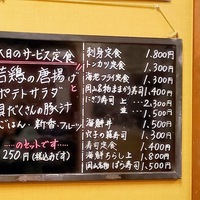 本日のサービス定食
若鶏の唐揚げ
ポテトサラダ
具だくさんの豚汁
ごはん・新香・フルーツ
のセットです
250円(税込みです)
刺身定食 1.800円
トンカツ定食 1.300円
海老フライ定食 1.300円
岡山名物ままかり寿司 1.400円
にぎり寿司 上 2.300円
1.500円
海鮮丼 1.500円
穴子の箱寿司 1.300円
寿司定食 1.400円
海鮮ちらし上 1.800円
岡山名物ばら寿司 1.500円